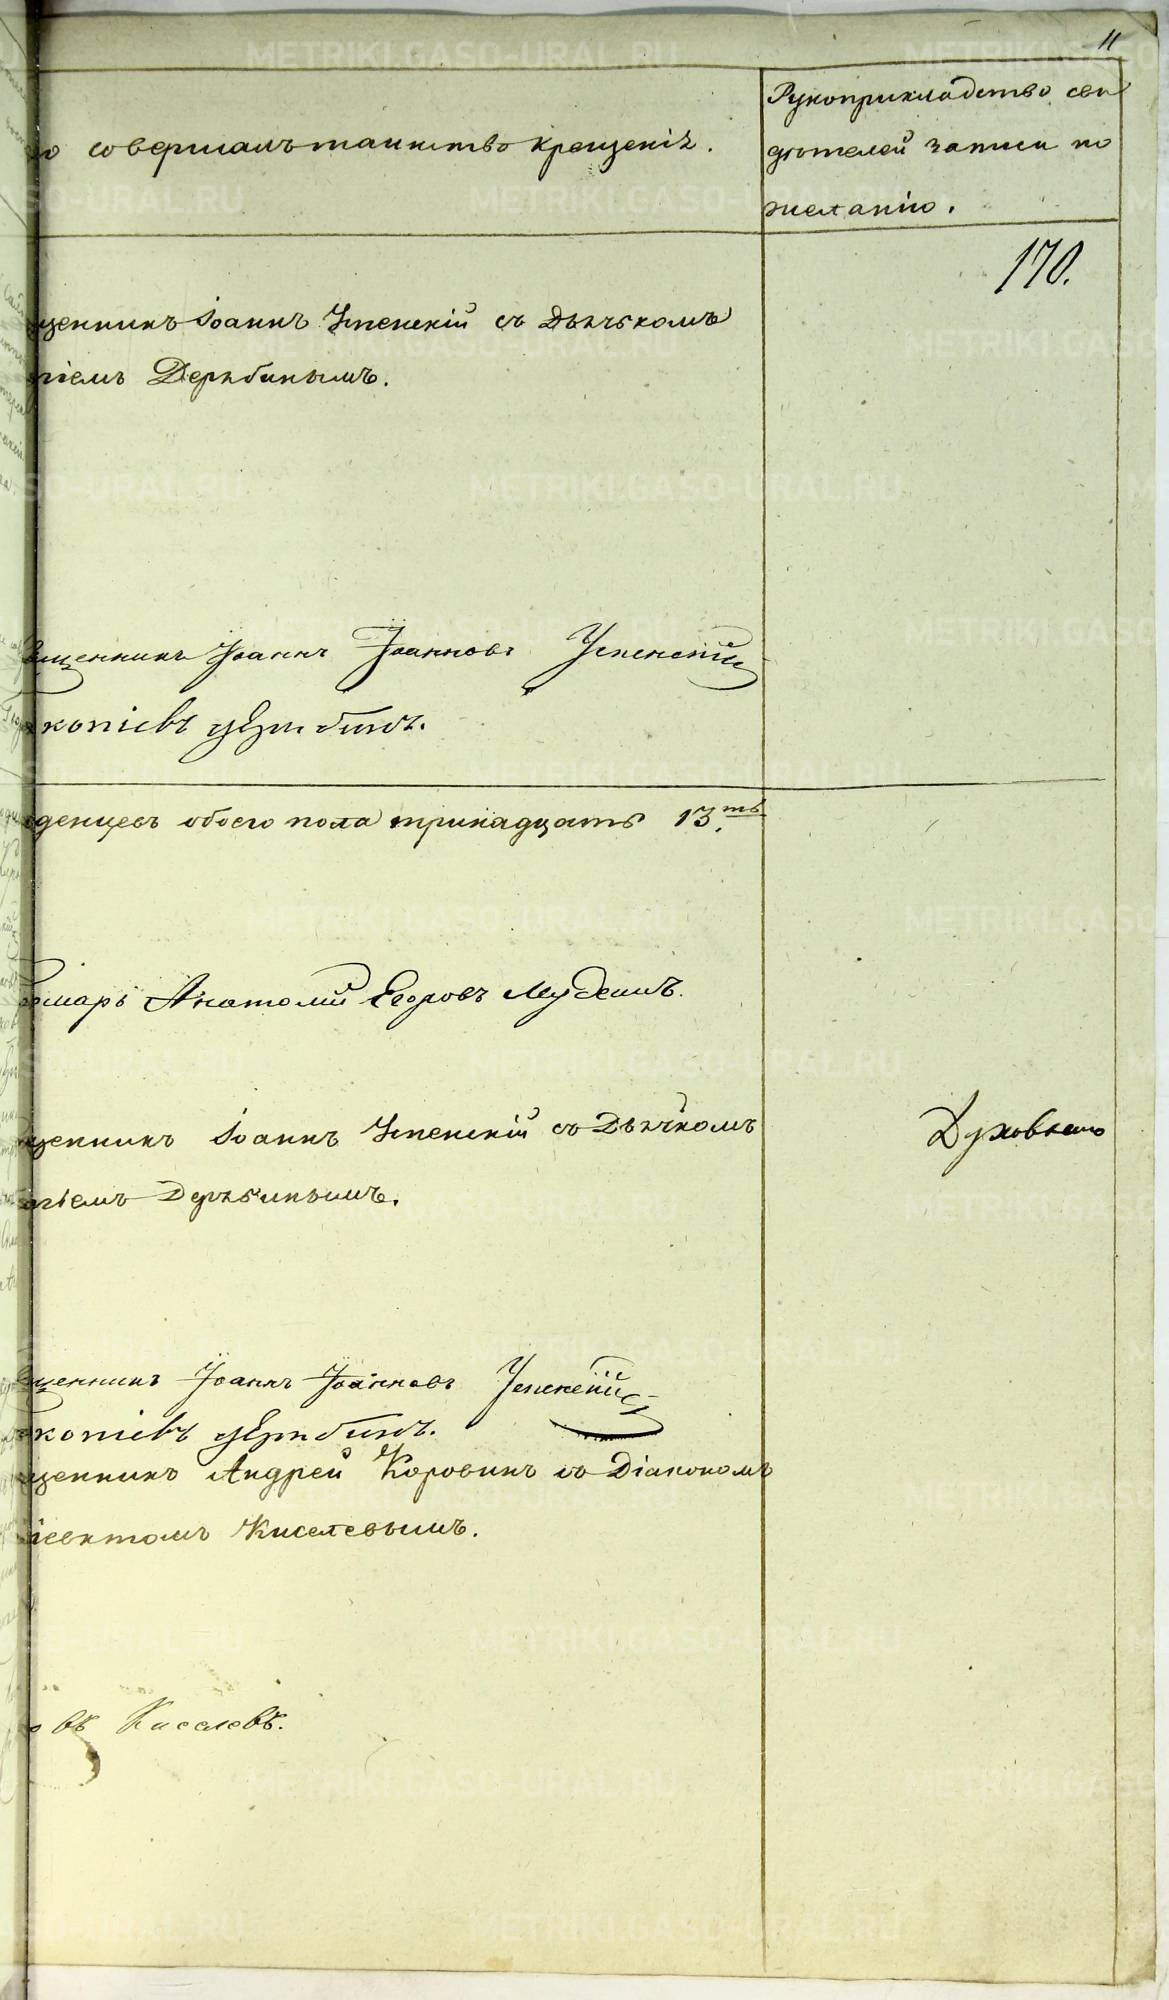 11
совершалъ таинство крещенія.
Рукоприкладство сви
дѣтелей записи по
желанію.
170.
щенникъ Іоаннъ Успенскій съ Дьячкомъ
гіемъ Дерябинымъ.
щенникъ Іоаннъ Іоанновъ Успенскій
копіевъ Дерябинъ.
денцевъ обоего пола тринадцать 13.ть
марь Анатолій Егоровъ
щенникъ Іоаннъ Успенскій съ Дьячкомъ
гіемъ Дерябинымъ.
Духовнаго
щенникъ Іоаннъ Іоанновъ Успенскій
копіевъ Дерябинъ.
щенникъ Андрей Коровинъ съ Діакономъ
Киселевымъ.
въ Киселевъ.
METRIKI.GASO-URAL.RU